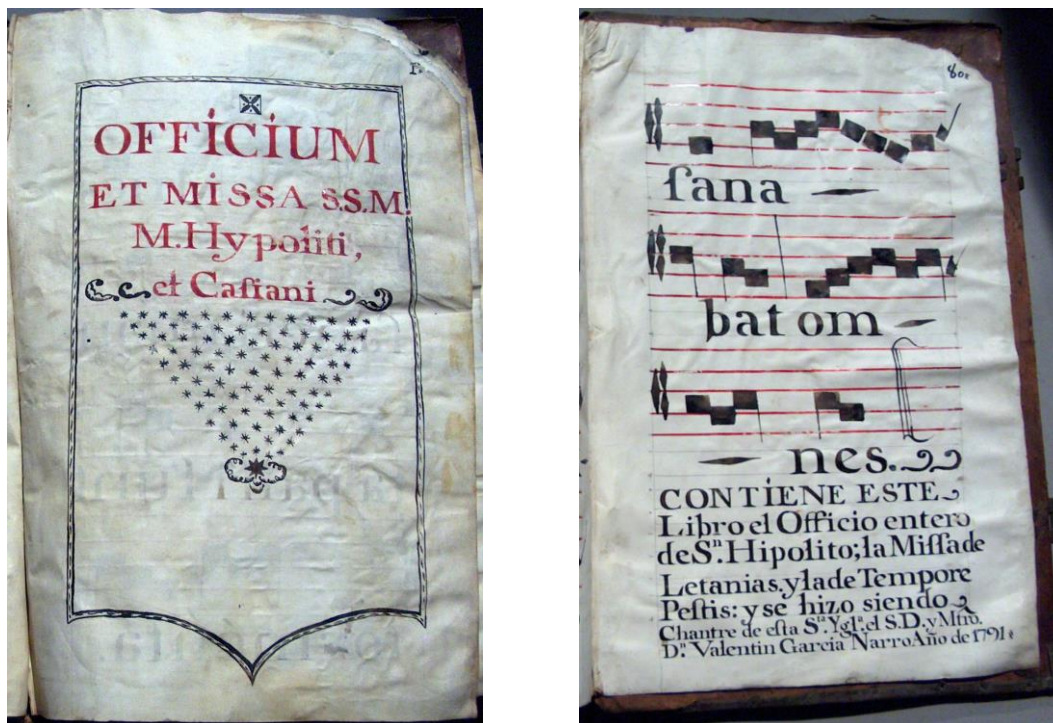 OFFICIUM
ET MISSA S.S.M.
M.Hypoliti,
et Caſiani
80
ſana
bat om
nes.
CONTIENE ESTE
Libro el Officio entero
de S.ⁿ Hipolito; la Miſſa de
Letanias. y la de Tempore
Peſtis: y se hizo siendo
Chantre de eſta S.ᵗᵃ Ygl.ᵃ el S.D. y Mtro.
D.ⁿ Valentin Garcia Narro Año de 1791